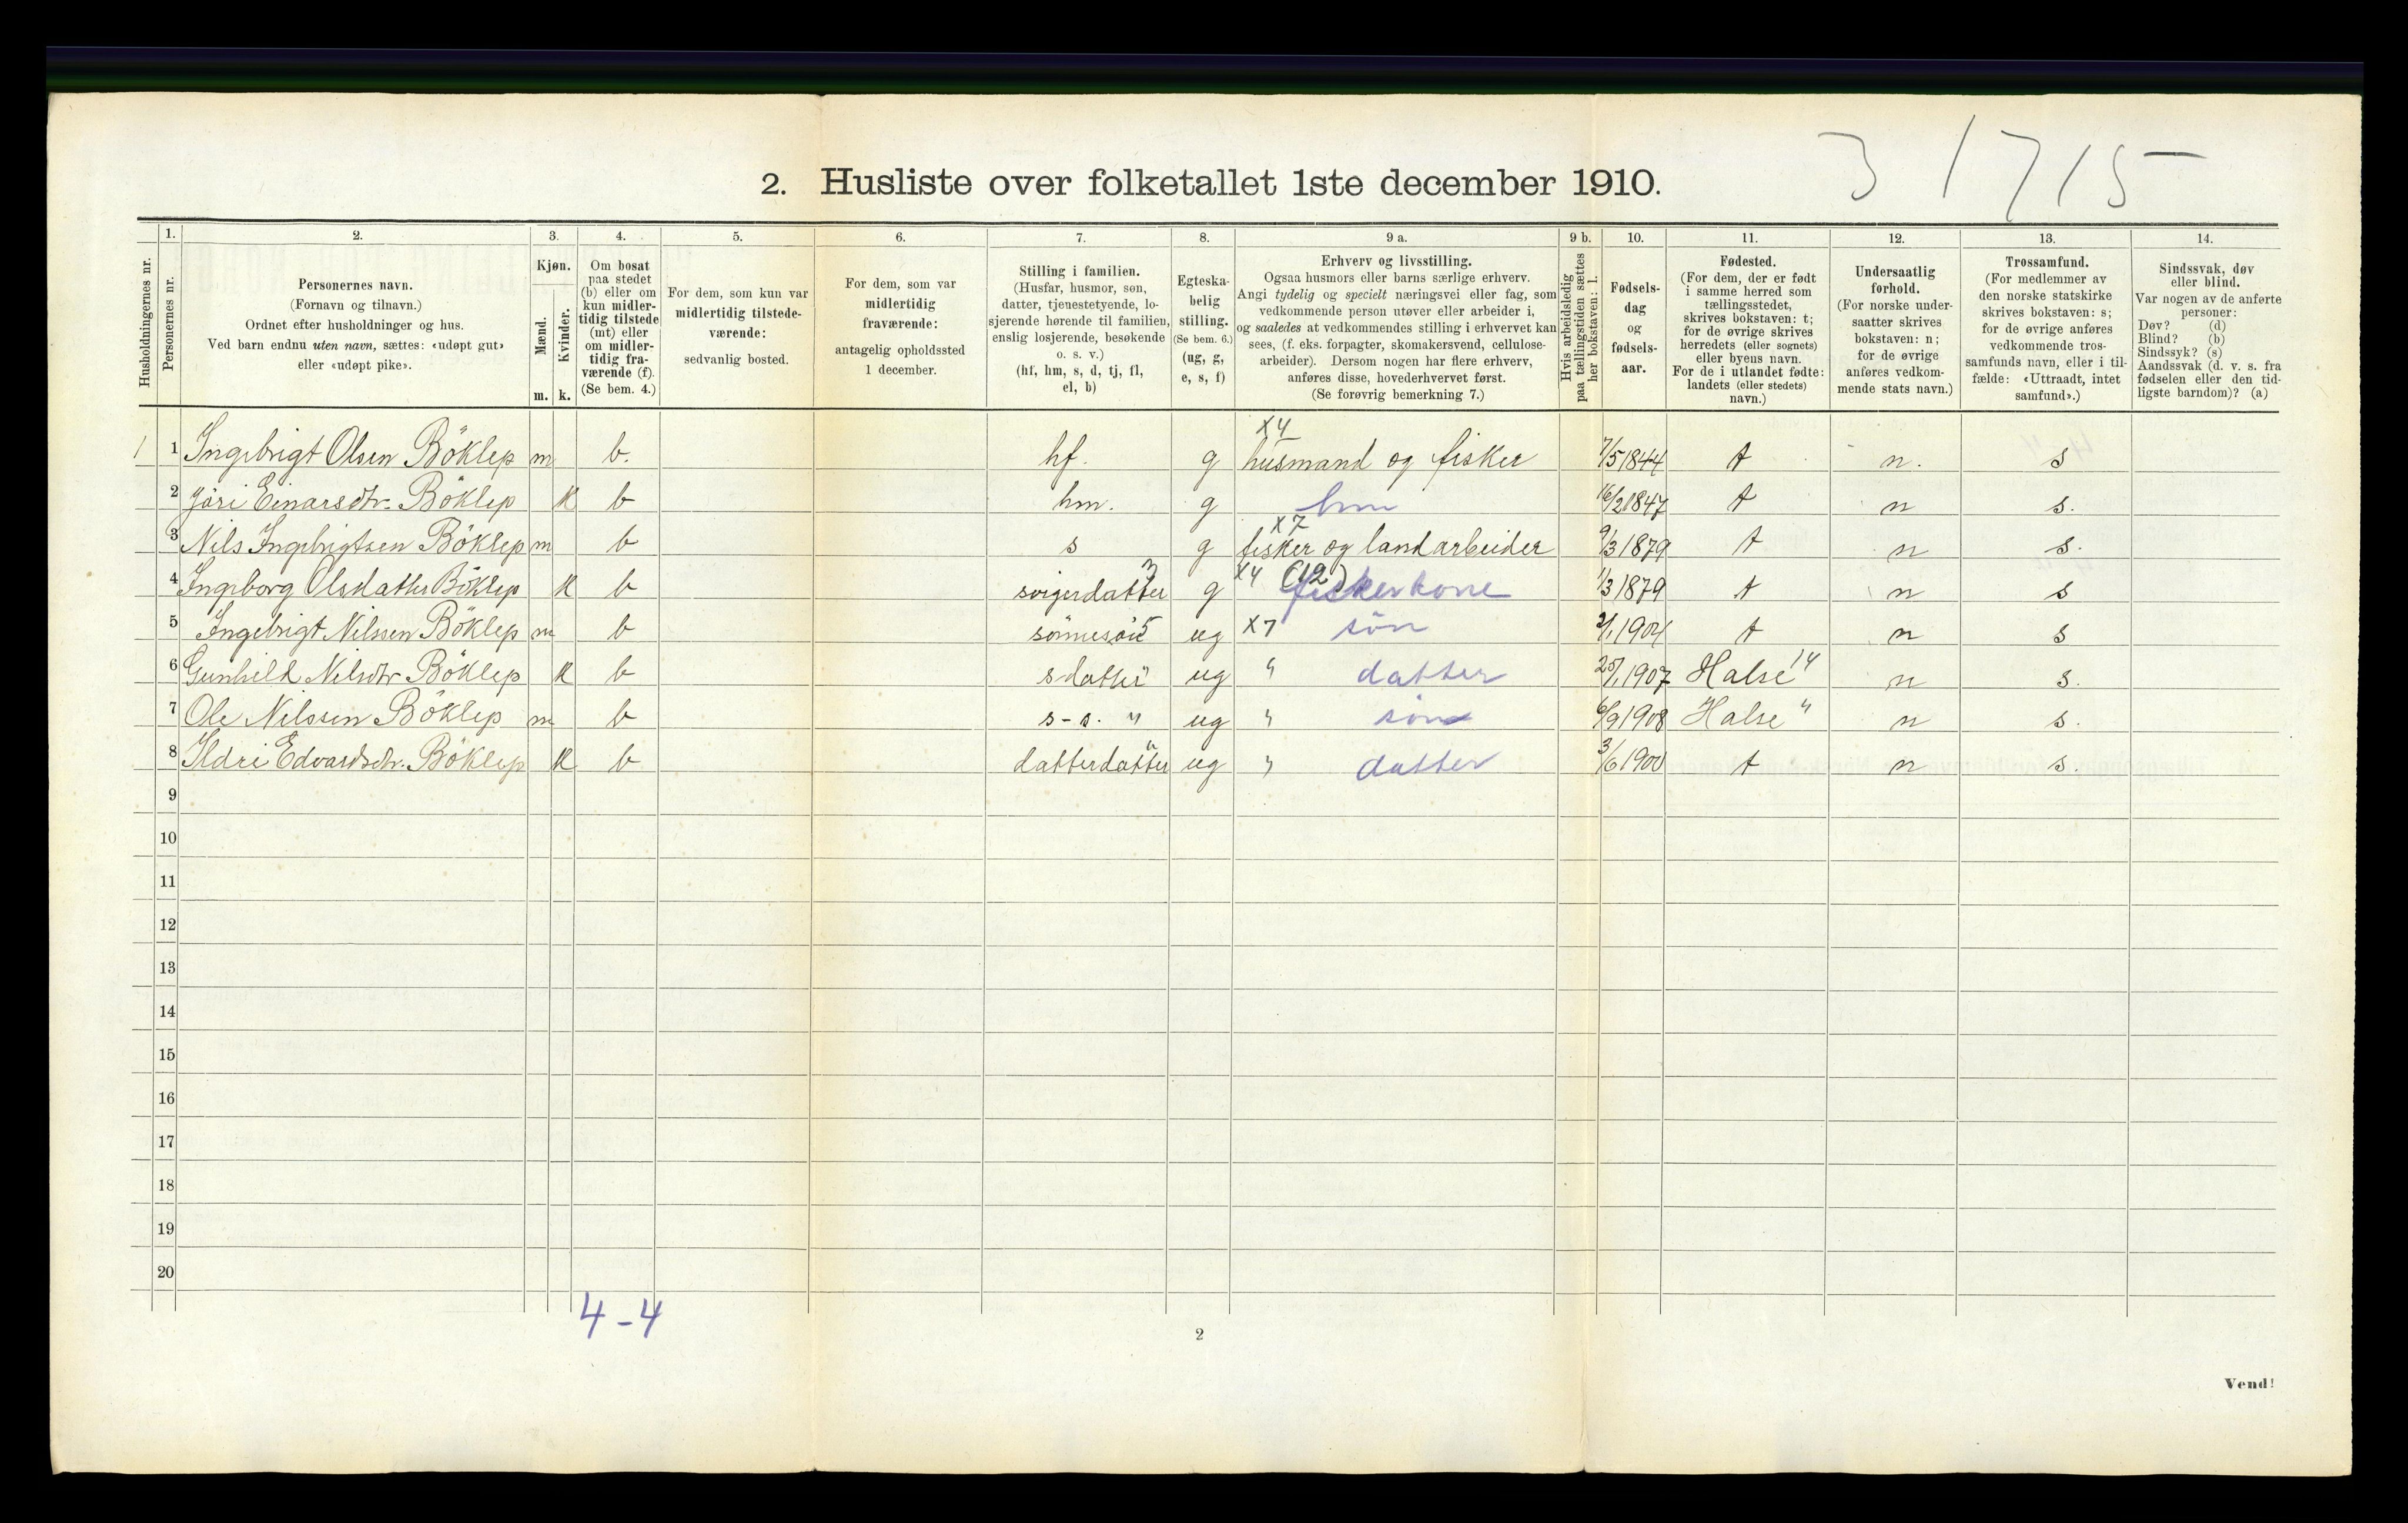 3 1715
2. Husliste over folketallet 1ste december 1910.
Husholdningernes nr.
1. Personernes nr.
2. Personernes navn. (Fornavn og tilnavn.) Ordnet efter husholdninger og hus. Ved barn endnu uten navn, sættes: «udøpt gut» eller «udøpt pike».
3. Kjøn. Mænd. m. Kvinder. k.
4. Om bosat paa stedet (b) eller om kun midlertidig tilstede (mt) eller om midlertidig fraværende (f). (Se bem. 4.)
5. For dem, som kun var midlertidig tilstedeværende: sedvanlig bosted.
6. For dem, som var midlertidig fraværende: antagelig opholdssted 1 december.
7. Stilling i familien. (Husfar, husmor, søn, datter, tjenestetyende, losjerende hørende til familien, enslig losjerende, besøkende o. s. v.) (hf, hm, s, d, tj, fl, el, b)
8. Egteskabelig stilling. (Se bem. 6.) (ug, g, e, s, f)
9 a. Erhverv og livsstilling. Ogsaa husmors eller barns særlige erhverv. Angi tydelig og specielt næringsvei eller fag, som vedkommende person utøver eller arbeider i, og saaledes at vedkommendes stilling i erhvervet kan sees, (f. eks. forpagter, skomakersvend, cellulosearbeider). Dersom nogen har flere erhverv, anføres disse, hovederhvervet først. (Se forøvrig bemerkning 7.)
9 b. Hvis arbeidsledig paa tællingstiden sættes her bokstaven: l.
10. Fødselsdag og fødselsaar.
11. Fødested. (For dem, der er født i samme herred som tællingsstedet, skrives bokstaven: t; for de øvrige skrives herredets (eller sognets) eller byens navn. For de i utlandet fødte: landets (eller stedets) navn.)
12. Undersaatlig forhold. (For norske undersaatter skrives bokstaven: n; for de øvrige anføres vedkommende stats navn.)
13. Trossamfund. (For medlemmer av den norske statskirke skrives bokstaven: s; for de øvrige anføres vedkommende trossamfunds navn, eller i tilfælde: «Uttraadt, intet samfund».)
14. Sindssvak, døv eller blind. Var nogen av de anførte personer: Døv? (d) Blind? (b) Sindssyk? (s) Aandssvak (d. v. s. fra fødselen eller den tidligste barndom)? (a)
1 1 Ingebrigt Olsen Böklep m b. hf. g X4 husmand og fisker 7/5 1844 t n. s
2 Jöri Einarsdtr. Böklep k b hm. g hm 16/2 1847 t n s.
3 Nils Ingebrigtsen Böklep m b s g X7 fisker og landarbeider 9/3 1879 t n s.
4 Ingeborg Olsdatter Böklep k b svigerdatter 3 g X4 (12) fiskerkone 1/3 1879 t n s
5 Ingebrigt Nilssen Böklep m b sönnesön 5 ug X7 sön 2/1 1904 t n s
6 Gunhild Nilsdtr Böklep k b sdatter " ug " datter 25/1 1907 Halse 14 n s.
7 Ole Nilssen Böklep m b s-s. " ug " sön 6/9 1908 Halse " n s.
8 Ildri Edvardsdtr. Böklep k b datterdatter " ug " datter 3/6 1900 t n s.
9
10
11
12
13
14
15
16
17
18
19
20
4-4
2
Vend!